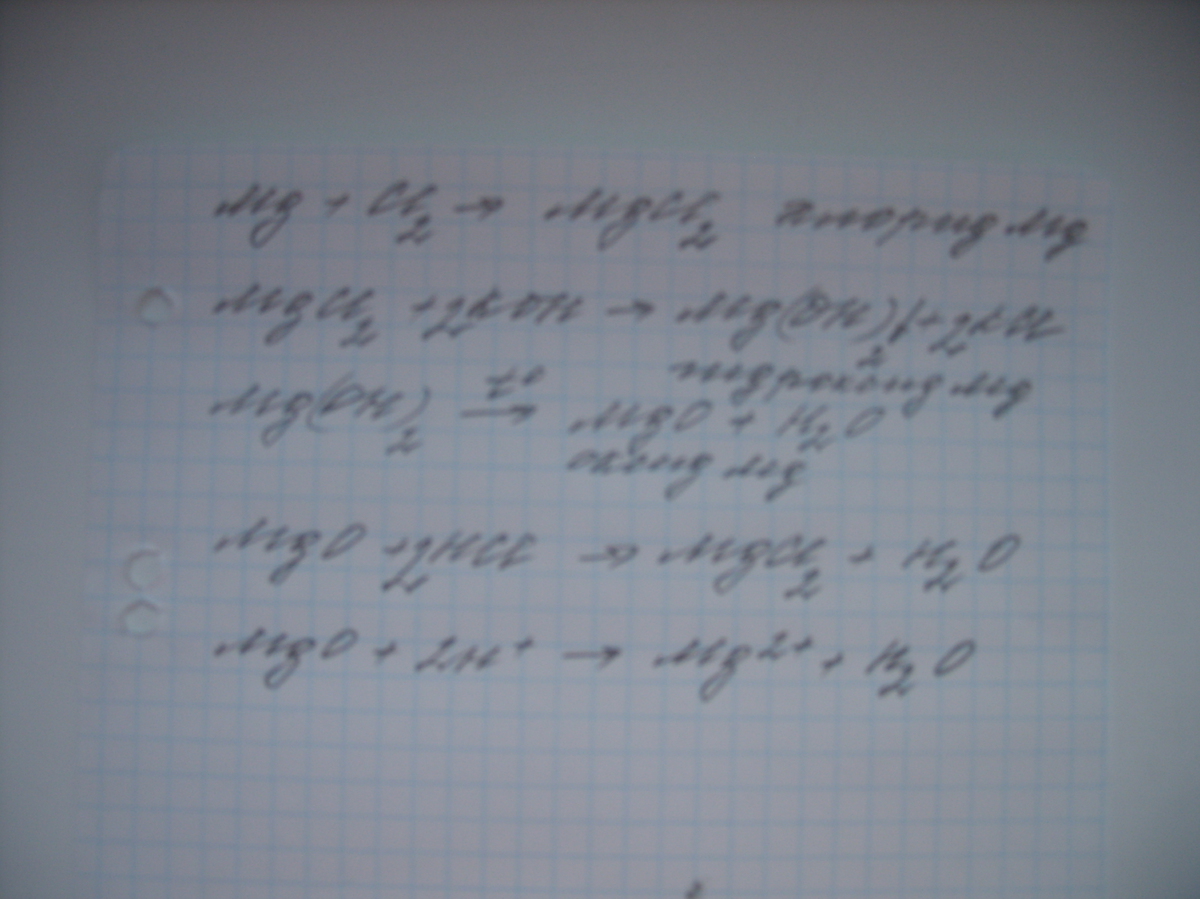 Mg + Cl₂ → MgCl₂ хлорид Mg
MgCl₂ + 2KOH → Mg(OH)₂↓ + 2KCl
гидроксид Mg
Mg(OH)₂ t° → MgO + H₂O
оксид Mg
MgO + 2HCl → MgCl₂ + H₂O
MgO + 2H⁺ → Mg²⁺ + H₂O